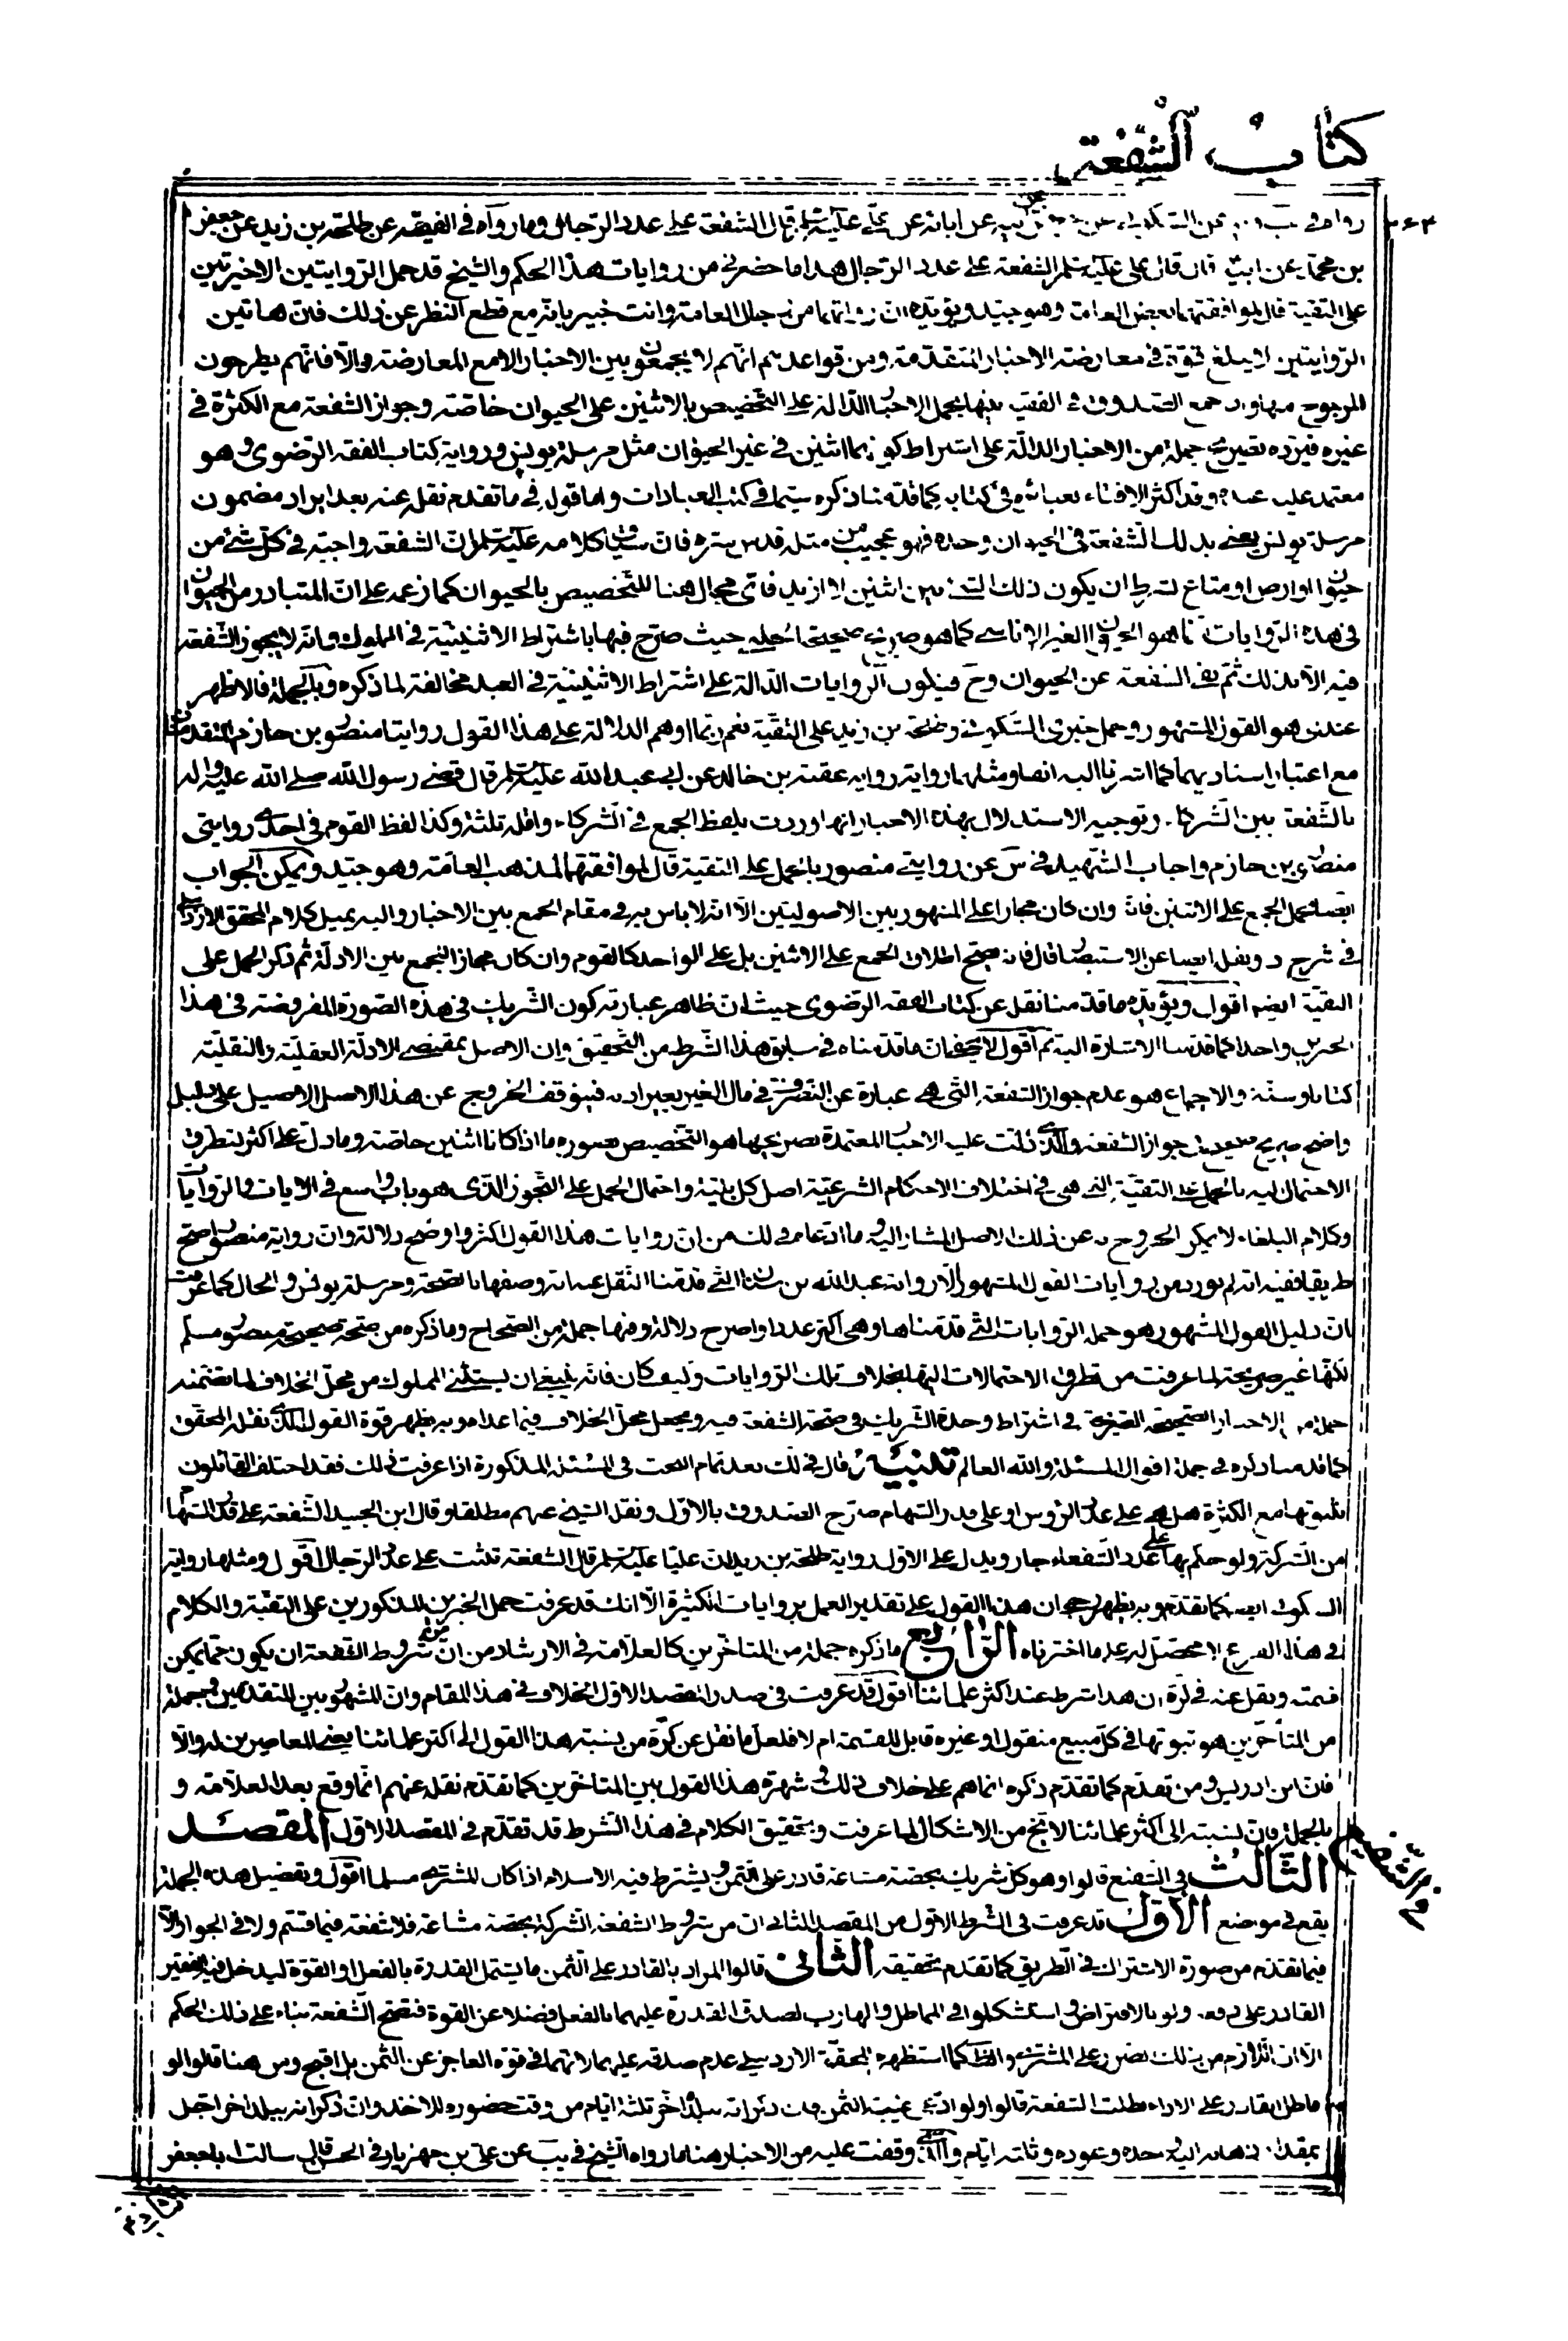 كتاب الشفعة
رواه في عن السكوني عن جعفر عن ابيه عن ابائه عن علي عليه السلم قال الشفعة على عدد الرجال وما رواه في الفقيه عن طلحة بن زيد عن جعفر
بن محمد عن ابيه قال قال علي عليه السلم الشفعة على عدد الرجال هذا ما حضرني من روايات هذا الحكم والشيخ قد حمل الروايتين الاخيرتين
على التقية قال لموافقتهما بعض العامة وهو جيد ويؤيده ان رواتهما من رجال العامة وانت خبير بانه مع قطع النظر عن ذلك فان هاتين
الروايتين لا يبلغ قوة في معارضة الاخبار المتقدمة ومن قواعدهم انهم لا يجمعون بين الاخبار الا مع المعارضة والا فانهم يطرحون
المرجوح منها واما جمع الصدوق في الفقيه بينها بحمل الاخبار الدالة على التخصيص بالاثنين على الحيوان خاصة وجواز الشفعة مع الكثرة في
غيره فيرده تصريح جملة من الاخبار الدالة على اشتراط كونهما اثنين في غير الحيوان مثل مرسلة يونس ورواية كتاب الفقه الرضوي وهو
معتمد عليه عنده وقد اكثر الافتاء بعبائره في كتابه كما قدمنا ذكره سيما في كتب العبادات واما قوله في ما تقدم نقله عنه بعد ايراد مضمون
مرسلة يونس يعني بذلك الشفعة في الحيوان وحده فهو عجيب من مثله قدس سره فان سياق كلامه عليه السلم ان الشفعة واجبة في كل شئ من
حيوان او ارض او متاع بشرط ان يكون ذلك الشئ بين اثنين لا ازيد فاي مجال هنا للتخصيص بالحيوان كما زعمه على ان المتبادر من الحيوان
في هذه الروايات انما هو الحيوان الغير الاناسي كما هو صريح صحيحة الحلبي حيث صرح فيها باشتراط الاثنينية في المملوك وانه لا يجوز الشفعة
فيه الا بذلك ثم نفى الشفعة عن الحيوان وح فيكون الروايات الدالة على اشتراط الاثنينية في العبد مخالفة لما ذكره وبالجملة فالاظهر
عندي هو القول المشهور وحمل خبري السكوني وطلحة بن زيد على التقية نعم ربما اوهم الدلالة على هذا القول روايتا منصور بن حازم المتقدمتان
مع اعتبار اسناديهما كما اشرنا اليه انفا ومثلهما رواية رواية عقبة بن خالد عن ابي عبد الله عليه السلم قال قضى رسول الله صلى الله عليه واله
بالشفعة بين الشركاء وتوجيه الاستدلال بهذه الاخبار انها وردت بلفظ الجمع في الشركاء واقله ثلثة وكذا لفظ القوم في احدى روايتي
منصور بن حازم واجاب الشهيد في س عن روايتي منصور بالحمل على التقية قال لموافقتهما لمذهب العامة وهو جيد ويمكن الجواب
ايضا بحمل الجمع على الاثنين فانه وان كان مجازا على المشهور بين الاصوليين الا انه لا باس به في مقام الجمع بين الاخبار واليه يميل كلام المحقق الاردبيلي
في شرح د ونقل ايضا عن الاستبصار قال فانه يصح اطلاق الجمع على الاثنين بل على الواحد كالقوم وان كان مجازا للجمع بين الادلة ثم ذكر الحمل على
التقية ايضا اقول ويؤيده ما قدمنا نقله عن كتاب الفقه الرضوي حيث ان ظاهر عبارته كون الشريك في هذه الصورة المفروضة في هذا
الخبر واحدا كما قدمنا الاشارة اليه ثم اقول لا يخفى ان ما قدمناه في سابق هذا الشرط من التحقيق وان الاصل بمقتضى الادلة العقلية والنقلية
كتابا وسنة والاجماع هو عدم جواز الشفعة التي هي عبارة عن التصرف في مال الغير بغير اذنه فيتوقف الخروج عن هذا الاصل الاصيل على دليل
واضح صريح في جواز الشفعة والذي دلت عليه الاخبار المعتمدة بصريحها هو التخصيص بصورة ما اذا كانا اثنين خاصة وما دل على اكثر لتطرق
الاحتمال اليه بالحمل على التقية التي هي في اختلاف الاحكام الشرعية اصل كل بلية واحتمال الحمل على التجوز الذي هو باب واسع في الايات والروايات
وكلام البلغاء لا يمكن الخروج به عن ذلك الاصل المشار اليه وما ادعاه في لك من ان روايات هذا القول اكثر واوضح دلالة وان رواية منصور اصح
طريقا ففيه انه لم يورد من روايات القول المشهور الا رواية عبد الله بن سنان التي قدمنا النقل عنه انه وصفها بالصحة ومرسلة يونس والحال كما عرفت
ان دليل القول المشهور هو جملة الروايات التي قدمناها وهي اكثر عددا واصرح دلالة وفيها جملة من الصحاح وما ذكره من صحة صحيحة منصور مسلم
لكنها غير صريحة لما عرفت من تطرق الاحتمالات اليها بخلاف تلك الروايات وكيف كان فانه ينبغي ان يستثنى المملوك من محل الخلاف لما تضمنه
جملة من الاخبار الصحيحة الصريحة في اشتراط وحدة الشريك في صحة الشفعة فيه ويجعل محل الخلاف فيما عداه وبه يظهر قوة القول الذي نقله المحقق
كما قدمنا ذكره في جملة اقوال المسئلة والله العالم تنبيه قال في لك بعد تمام البحث في المسئلة المذكورة اذا عرفت ذلك فقد اختلف القائلون
بثبوتها مع الكثرة هل هي على عدد الرؤس او على قدر السهام صرح الصدوق بالاول ونقل الشيخ عنهم مطلقا وقال ابن الجنيد الشفعة على قدر السهام
من الشركة ولو حكم بها على عدد الشفعاء جاز ويدل على الاول رواية طلحة بن زيد ان عليا عليه السلم قال الشفعة تثبت على عدد الرجال اقول ومثلها رواية
السكوني ايضا كما تقدم وبه يظهر ان هذا القول على تقدير العمل بروايات الكثيرة الا انك قد عرفت حمل الخبرين المذكورين على التقية والكلام
في هذا الفرع لا محصل له على ما اخترناه الرابع ما ذكره جملة من المتاخرين كالعلامة في الارشاد من ان من شروط الشفعة ان يكون مما يمكن
قسمته ونقل عنه في كرة ان هذا شرط عند اكثر علمائنا اقول قد عرفت في صدر المقصد الاول الخلاف في هذا المقام وان المشهور بين المتقدمين وجملة
من المتأخرين هو ثبوتها في كل مبيع منقول او غيره قابل للقسمة ام لا فلعل ما نقل عن كرة من نسبة هذا القول الى اكثر علمائنا يعني المعاصرين له والا
فان ابن ادريس ومن تقدم كما تقدم ذكره انما هم على خلاف ذلك وشهرة هذا القول بين المتاخرين كما تقدم نقله عنهم انما وقع بعد العلامة و
بالجملة فان نسبته الى اكثر علمائنا لا تخ من الاشكال لما عرفت وتحقيق الكلام في هذا الشرط قد تقدم في المقصد الاول المقصد
الثالث في الشفيع قالوا وهو كل شريك بحصة مشاعة قادر على الثمن ويشترط فيه الاسلام اذا كان المشتري مسلما اقول وتفصيل هذه الجملة
يقع في مواضع الاول قد عرفت في الشرط الاول من المقصد الثاني ان من شروط الشفعة الشركة بحصة مشاعة فلا شفعة فيما قسم ولا في الجوار الا
فيما تقدم من صورة الاشتراك في الطريق كما تقدم تحقيقه الثاني قالوا المراد بالقادر على الثمن ما يشتمل القدرة بالفعل او القوة ليدخل فيه الفقير
القادر على دفعه ولو بالاقتراض واستشكلوا في المماطل والهارب لصدق القدرة عليهما بالفعل فضلا عن القوة فتصح الشفعة بناء على ذلك الحكم
الا ان اللازم من ذلك ضرر على المشتري والظ كما استظهره المحقق الاردبيلي عدم صدقه عليهما لانهما في قوة العاجز عن الثمن بل اقبح ومن هنا قالوا لو
ماطل القادر على الاداء بطلت الشفعة قالوا ولو ادعى غيبة الثمن فان ذكر انه ببلده اخر ثلثة ايام من وقت حضوره للاخذ وان ذكر انه ببلد اخر اجل
بمقدار ذهابه اليه وعوده وثلثة ايام والذي وقفت عليه من الاخبار هنا ما رواه الشيخ في يب عن علي بن مهزيار في الحسن قال سالت ابا جعفر